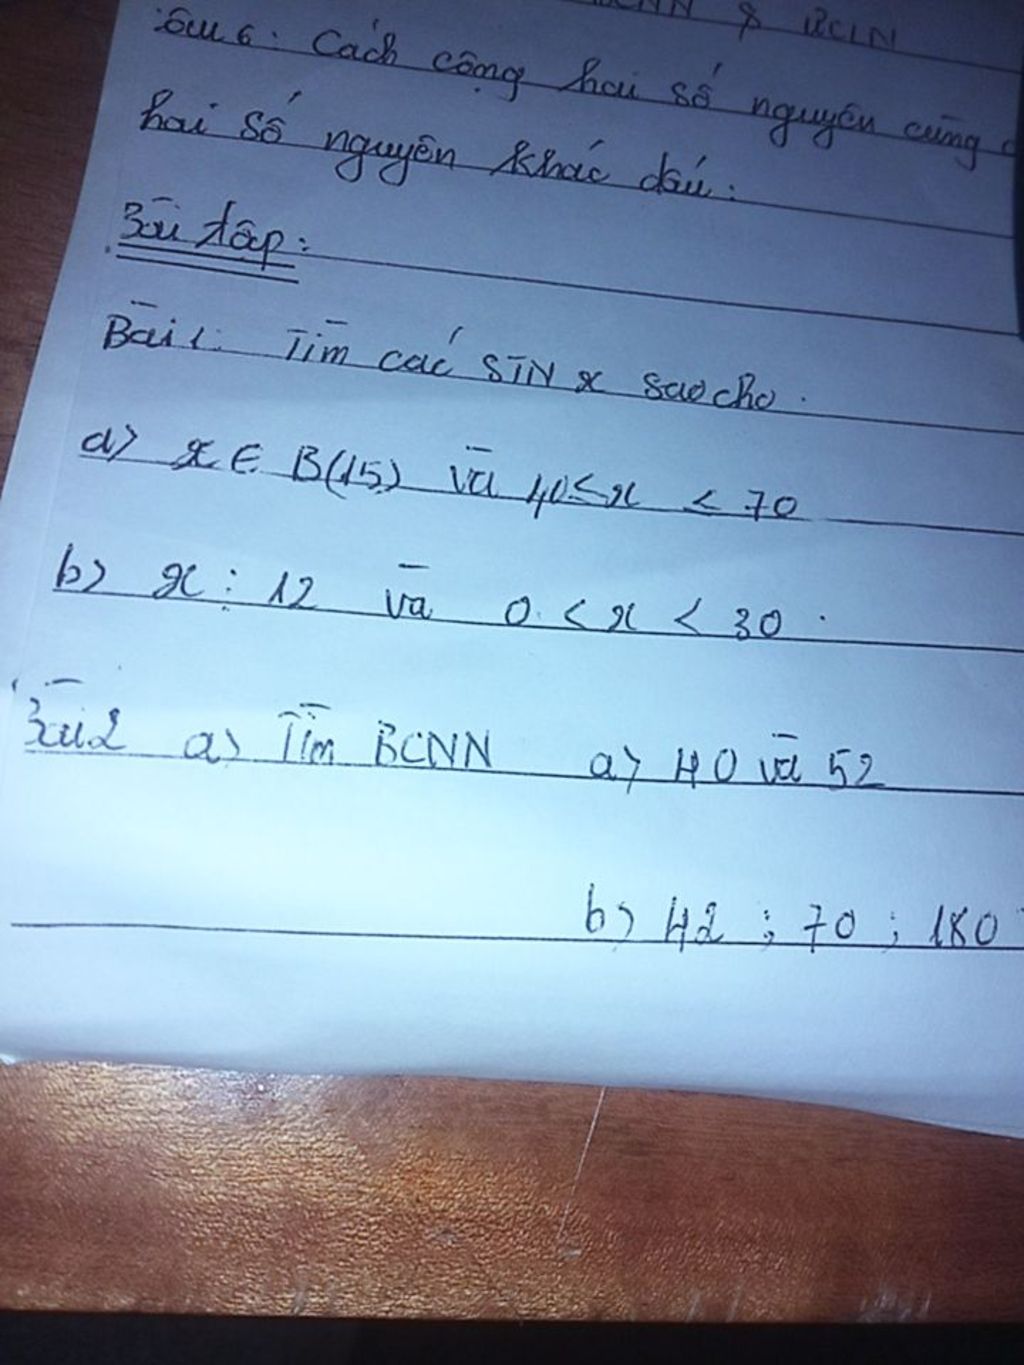 CNN & ƯCLN
Câu 6: Cách cộng hai số nguyên cùng
hai số nguyên khác dấu.
Bài tập:
Bài 1: Tìm các STN x sao cho.
a) x ∈ B(15) và 40 ≤ x ≤ 70
b) x ⋮ 12 và 0 < x < 30.
Bài 2 a) Tìm BCNN a) 40 và 52
b) 42 ; 70 ; 180